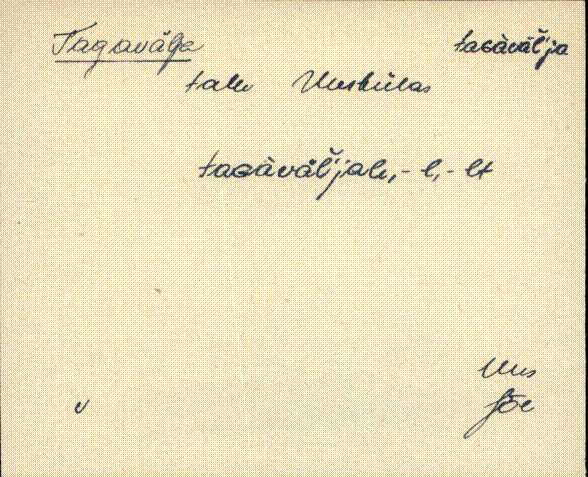 Tagavälja taGàväĺja
talu Uuskülas
taGàväĺjale, -l, -lt
Uus
v Jõe